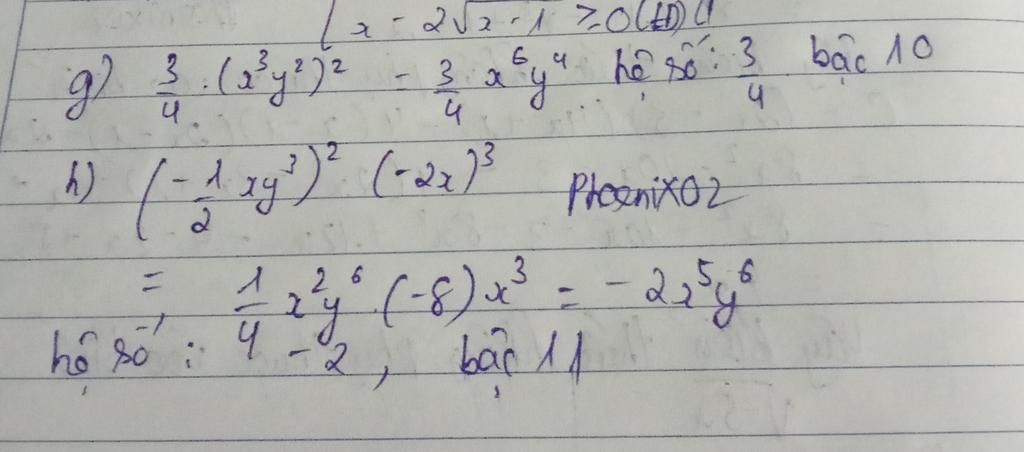 x - 2√x - 1 ≥ 0 (
g) 3/4 · (x³y²)² = 3/4 x⁶y⁴ hệ số: 3/4 bậc 10
h) (-1/2 xy³)² (-2x)³ PhoeniX02
= 1/4 x²y⁶ · (-8)x³ = -2x⁵y⁶
hệ số: -2, bậc 11